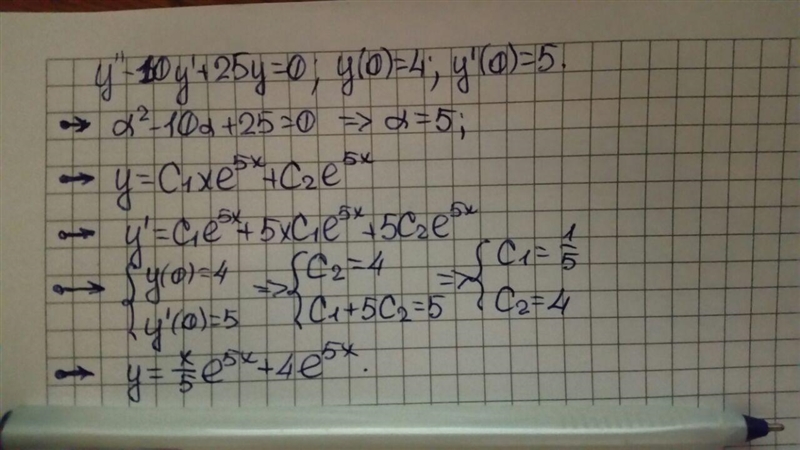 y''-10y'+25y=0; y(0)=4; y'(0)=5.
→ α²-10α+25=0 => α=5;
→ y=C₁xe^{5x}+C₂e^{5x}
→ y'=C₁e^{5x}+5xC₁e^{5x}+5C₂e^{5x}
→ {y(0)=4 y'(0)=5 => {C₂=4 C₁+5C₂=5 => {C₁=1/5 C₂=4
→ y=x/5 e^{5x}+4e^{5x}.